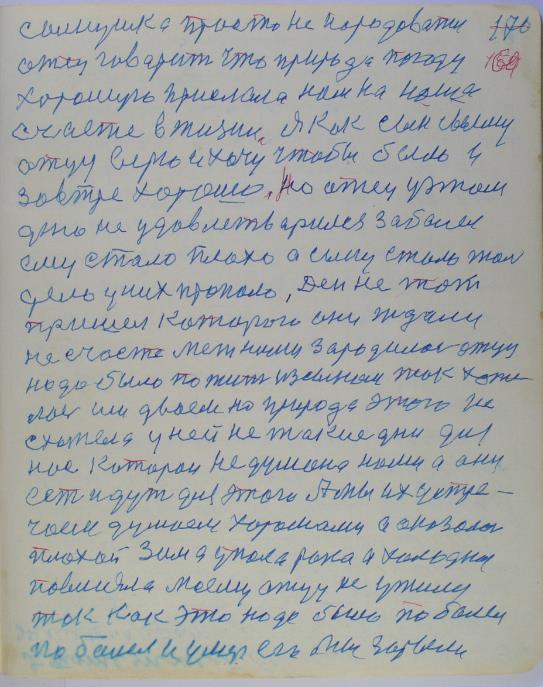 солнушка просто не породовати 170
отец говарить что природа погоду 169
хорошую прислала нам на наша
счасте в жизни, Я как сын своему
отцу верю и хочу чтобы было и
завтре хорошо, но отец уэтом
дню не удовлетварился заболел
ему стало плохо а сыну стало жал
дело у них пропало, Ден не тот
пришел которого они ждали
не счасте меж нами зародилос отцу
надо было пожить и сынам так хоте
лос им двоем но природа этого не
схотела у ней не такие дни для
нас которои недумана нами а они
ест идут для этого мы их встре-
чаем думаем хорошами а оказалос
плохой Зима упала рана и холодна
повлияла моему отцу не ужилу
так как это надо было по болел
по болел и умер его мы зарыли